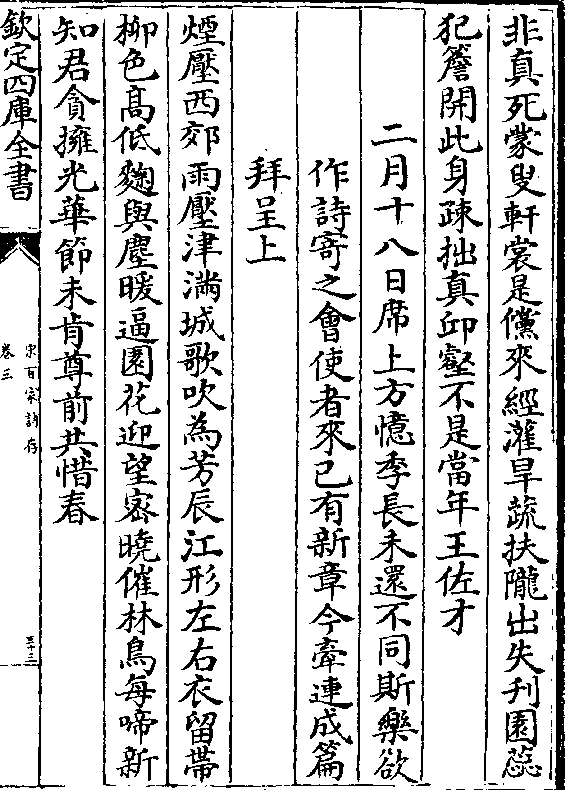 非真死蒙叟軒裳是儻來經灌旱蔬扶隴出失刋園蕊
犯簷開此身疎拙真丘壑不是當年王佐才
二月十八日席上方憶季長未還不同斯樂欲
作詩寄之會使者來已有新章今牽連成篇
拜呈上
煙壓西郊雨壓津滿城歌吹為芳辰江形左右衣留帶
柳色髙低麴與塵暖逼園花迎望宻曉催林鳥每啼新
知君貪擁光華節未肯尊前共惜春
欽定四庫全書
宋百家詩存
卷三
三十三